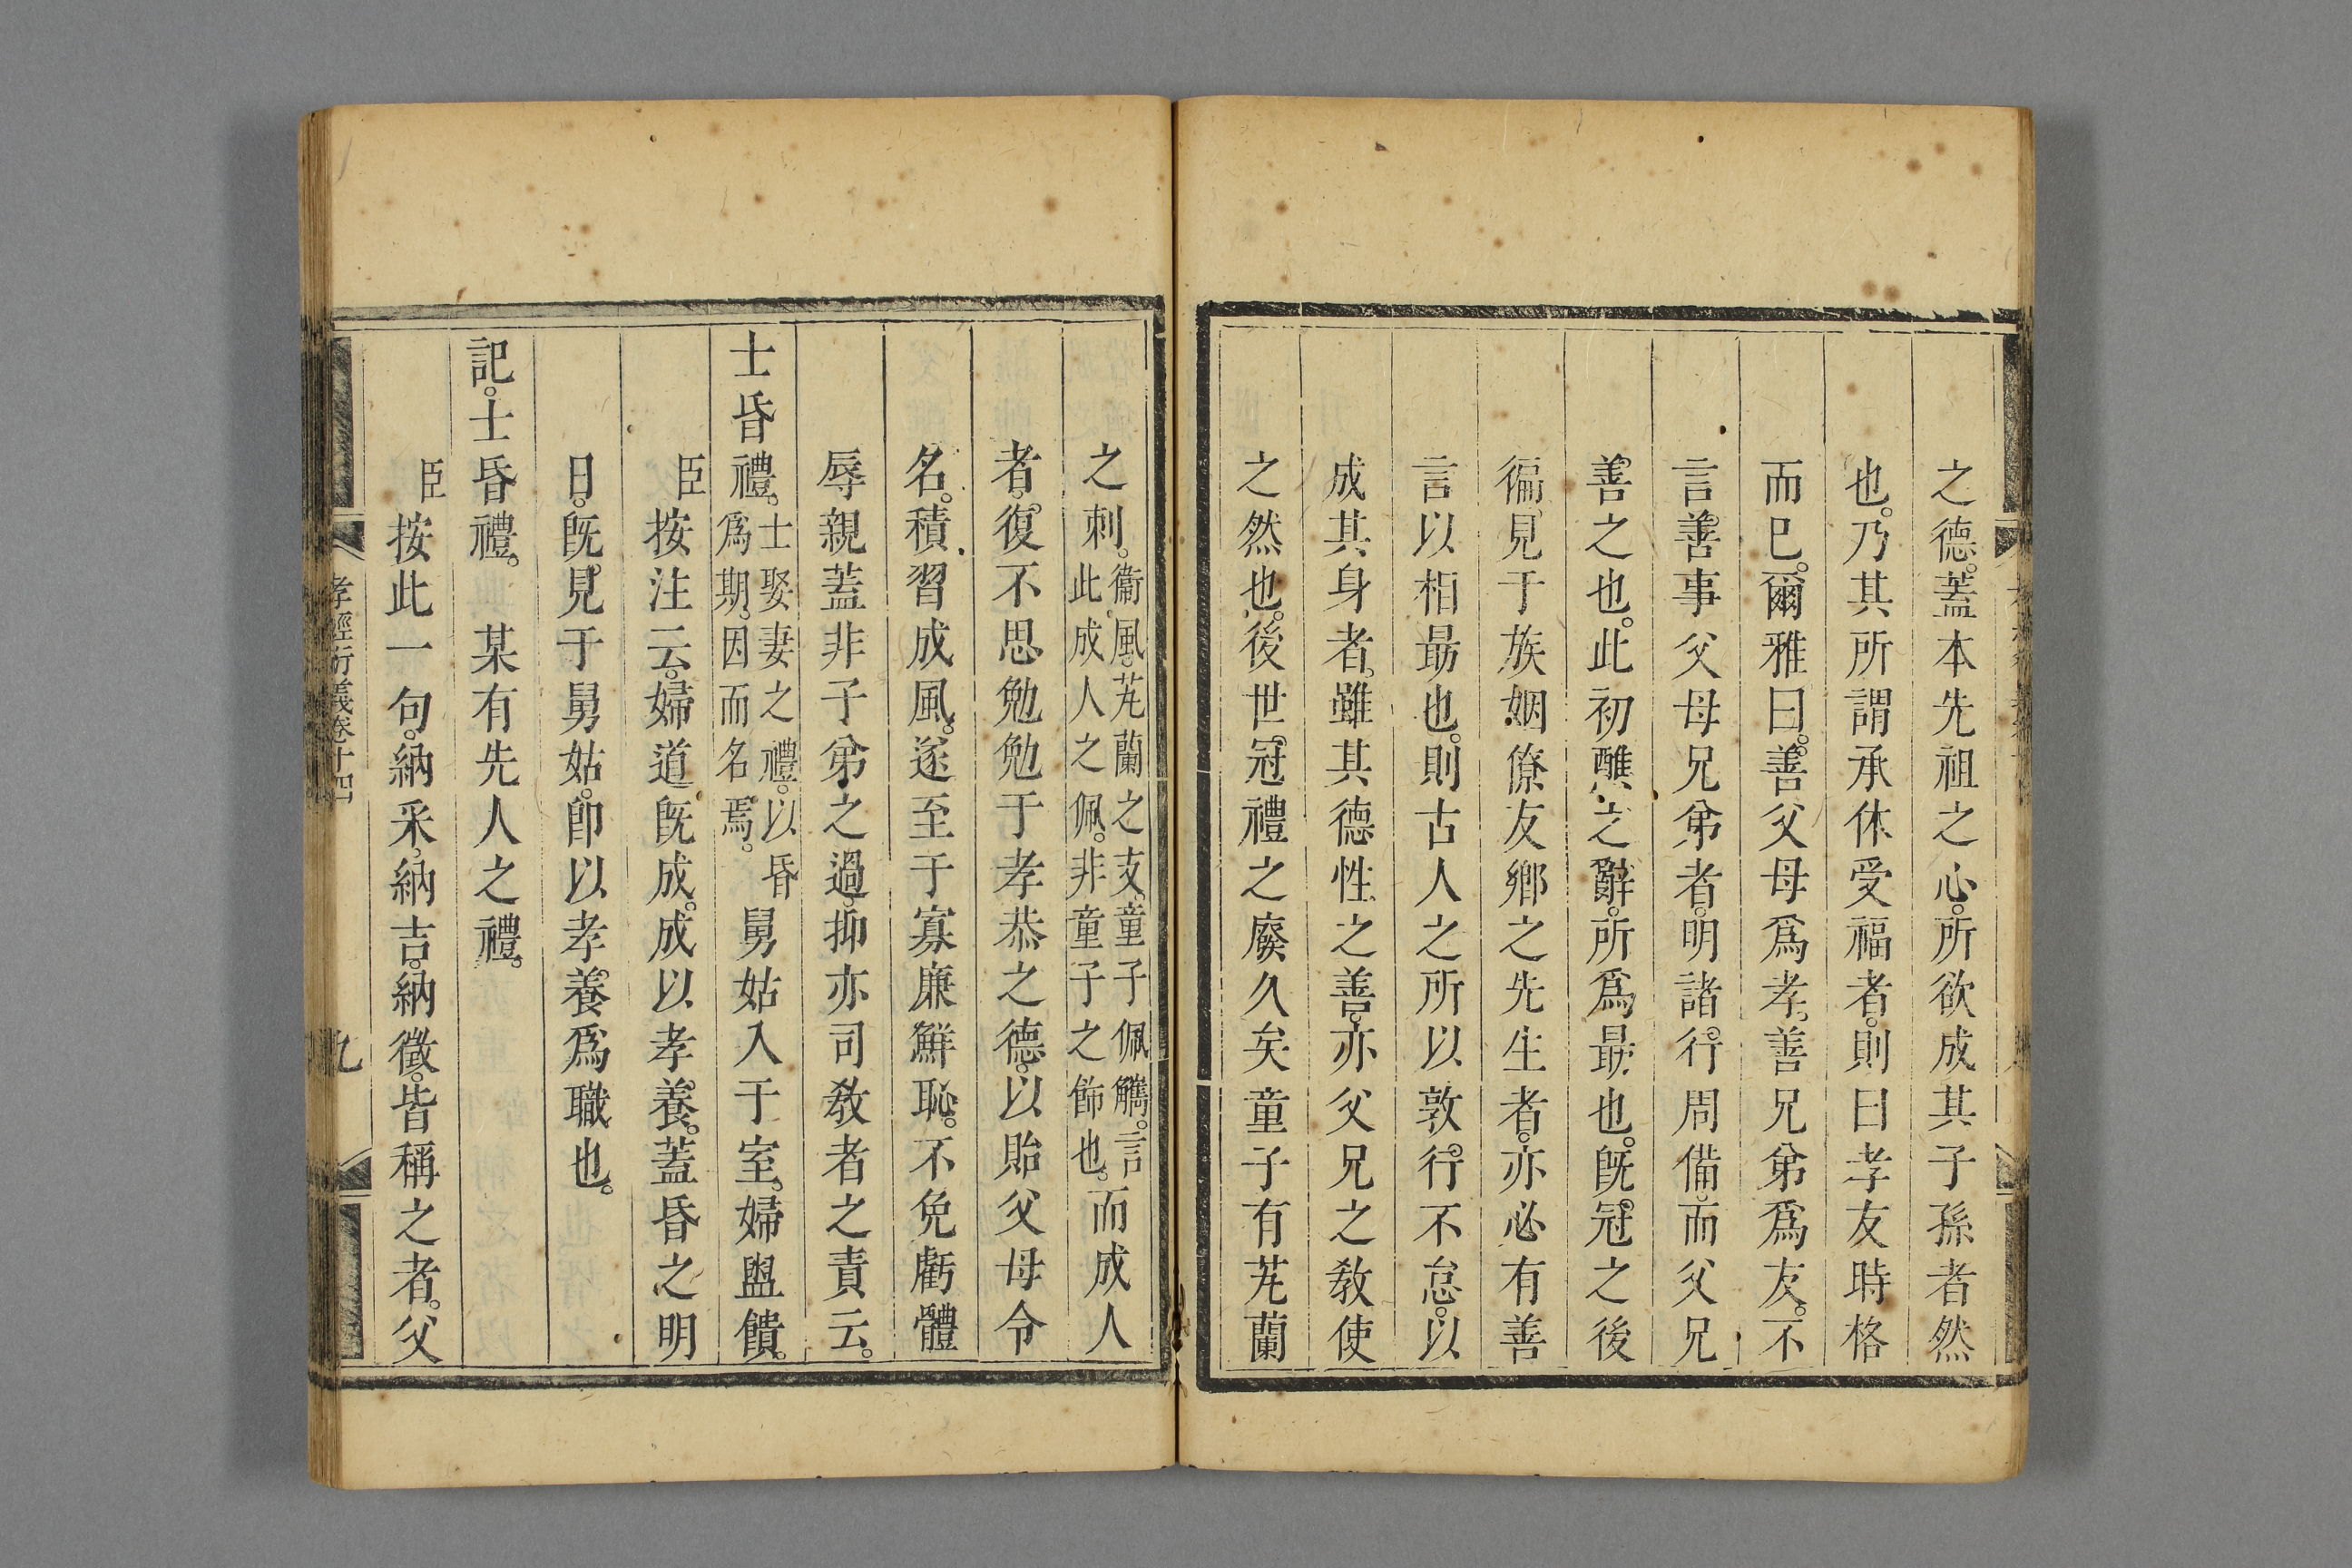 之德。蓋本先祖之心。所欲成其子孫者然
也。乃其所謂承休受福者。則曰孝友時格
而已。爾雅曰。善父母爲孝。善兄弟爲友。不
言善事父母兄弟者。明諸行周備。而父兄
善之也。此初醮之辭。所爲最也。旣冠之後
徧見于族姻僚友鄉之先生者。亦必有善
言以相勗也。則古人之所以敦行不怠。以
成其身者。雖其德性之善。亦父兄之敎使
之然也。後世冠禮之廢久矣童子有芄蘭
之刺。衞風。芄蘭之支。童子佩觿。言此成人之佩。非童子之飾也。而成人
者。復不思勉勉于孝恭之德。以貽父母令
名。積習成風。遂至于寡廉鮮恥。不免虧體
辱親蓋非子弟之過。抑亦司敎者之責云。
士昏禮。士娶妻之禮。以昏爲期。因而名焉。舅姑入于室。婦盥饋。
臣按注云。婦道旣成。成以孝養。蓋昏之明
日。旣見于舅姑。卽以孝養爲職也。
記。士昏禮。某有先人之禮。
臣按此一句。納采。納吉。納徵。皆稱之者。父
孝經衍義卷十四
九